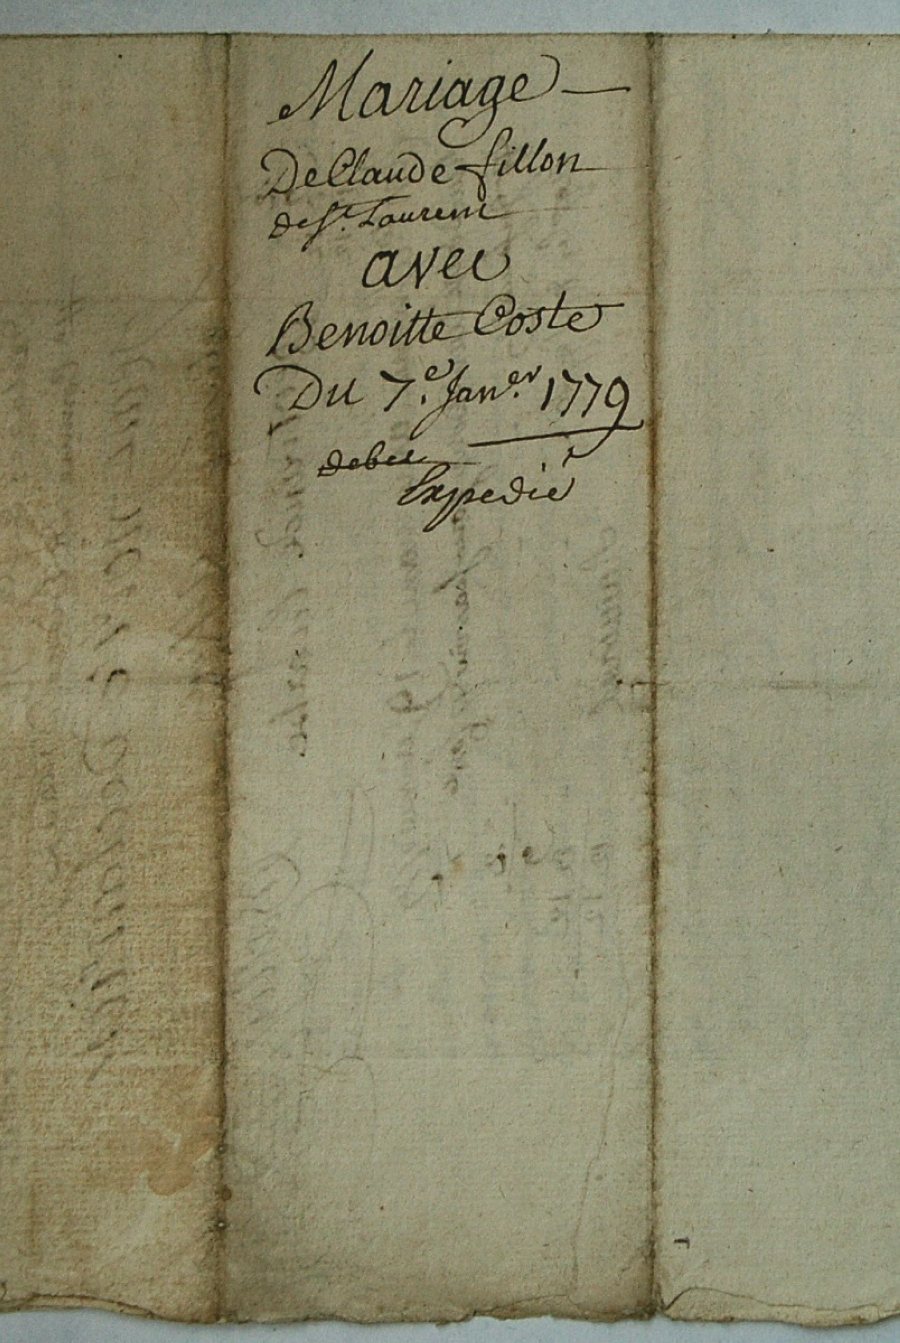 Mariage
De Claude fillon
de St. Laurent
avec
Benoitte Coste
Du 7e. Janer. 1779
Expedié